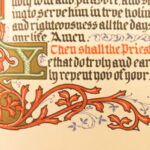 holy will and pleasure, and
ingly serve him in true holin
and righteousness all the days
our life. Amen.
Then shall the Priest
Y
that do truly and earn
ly repent you of your